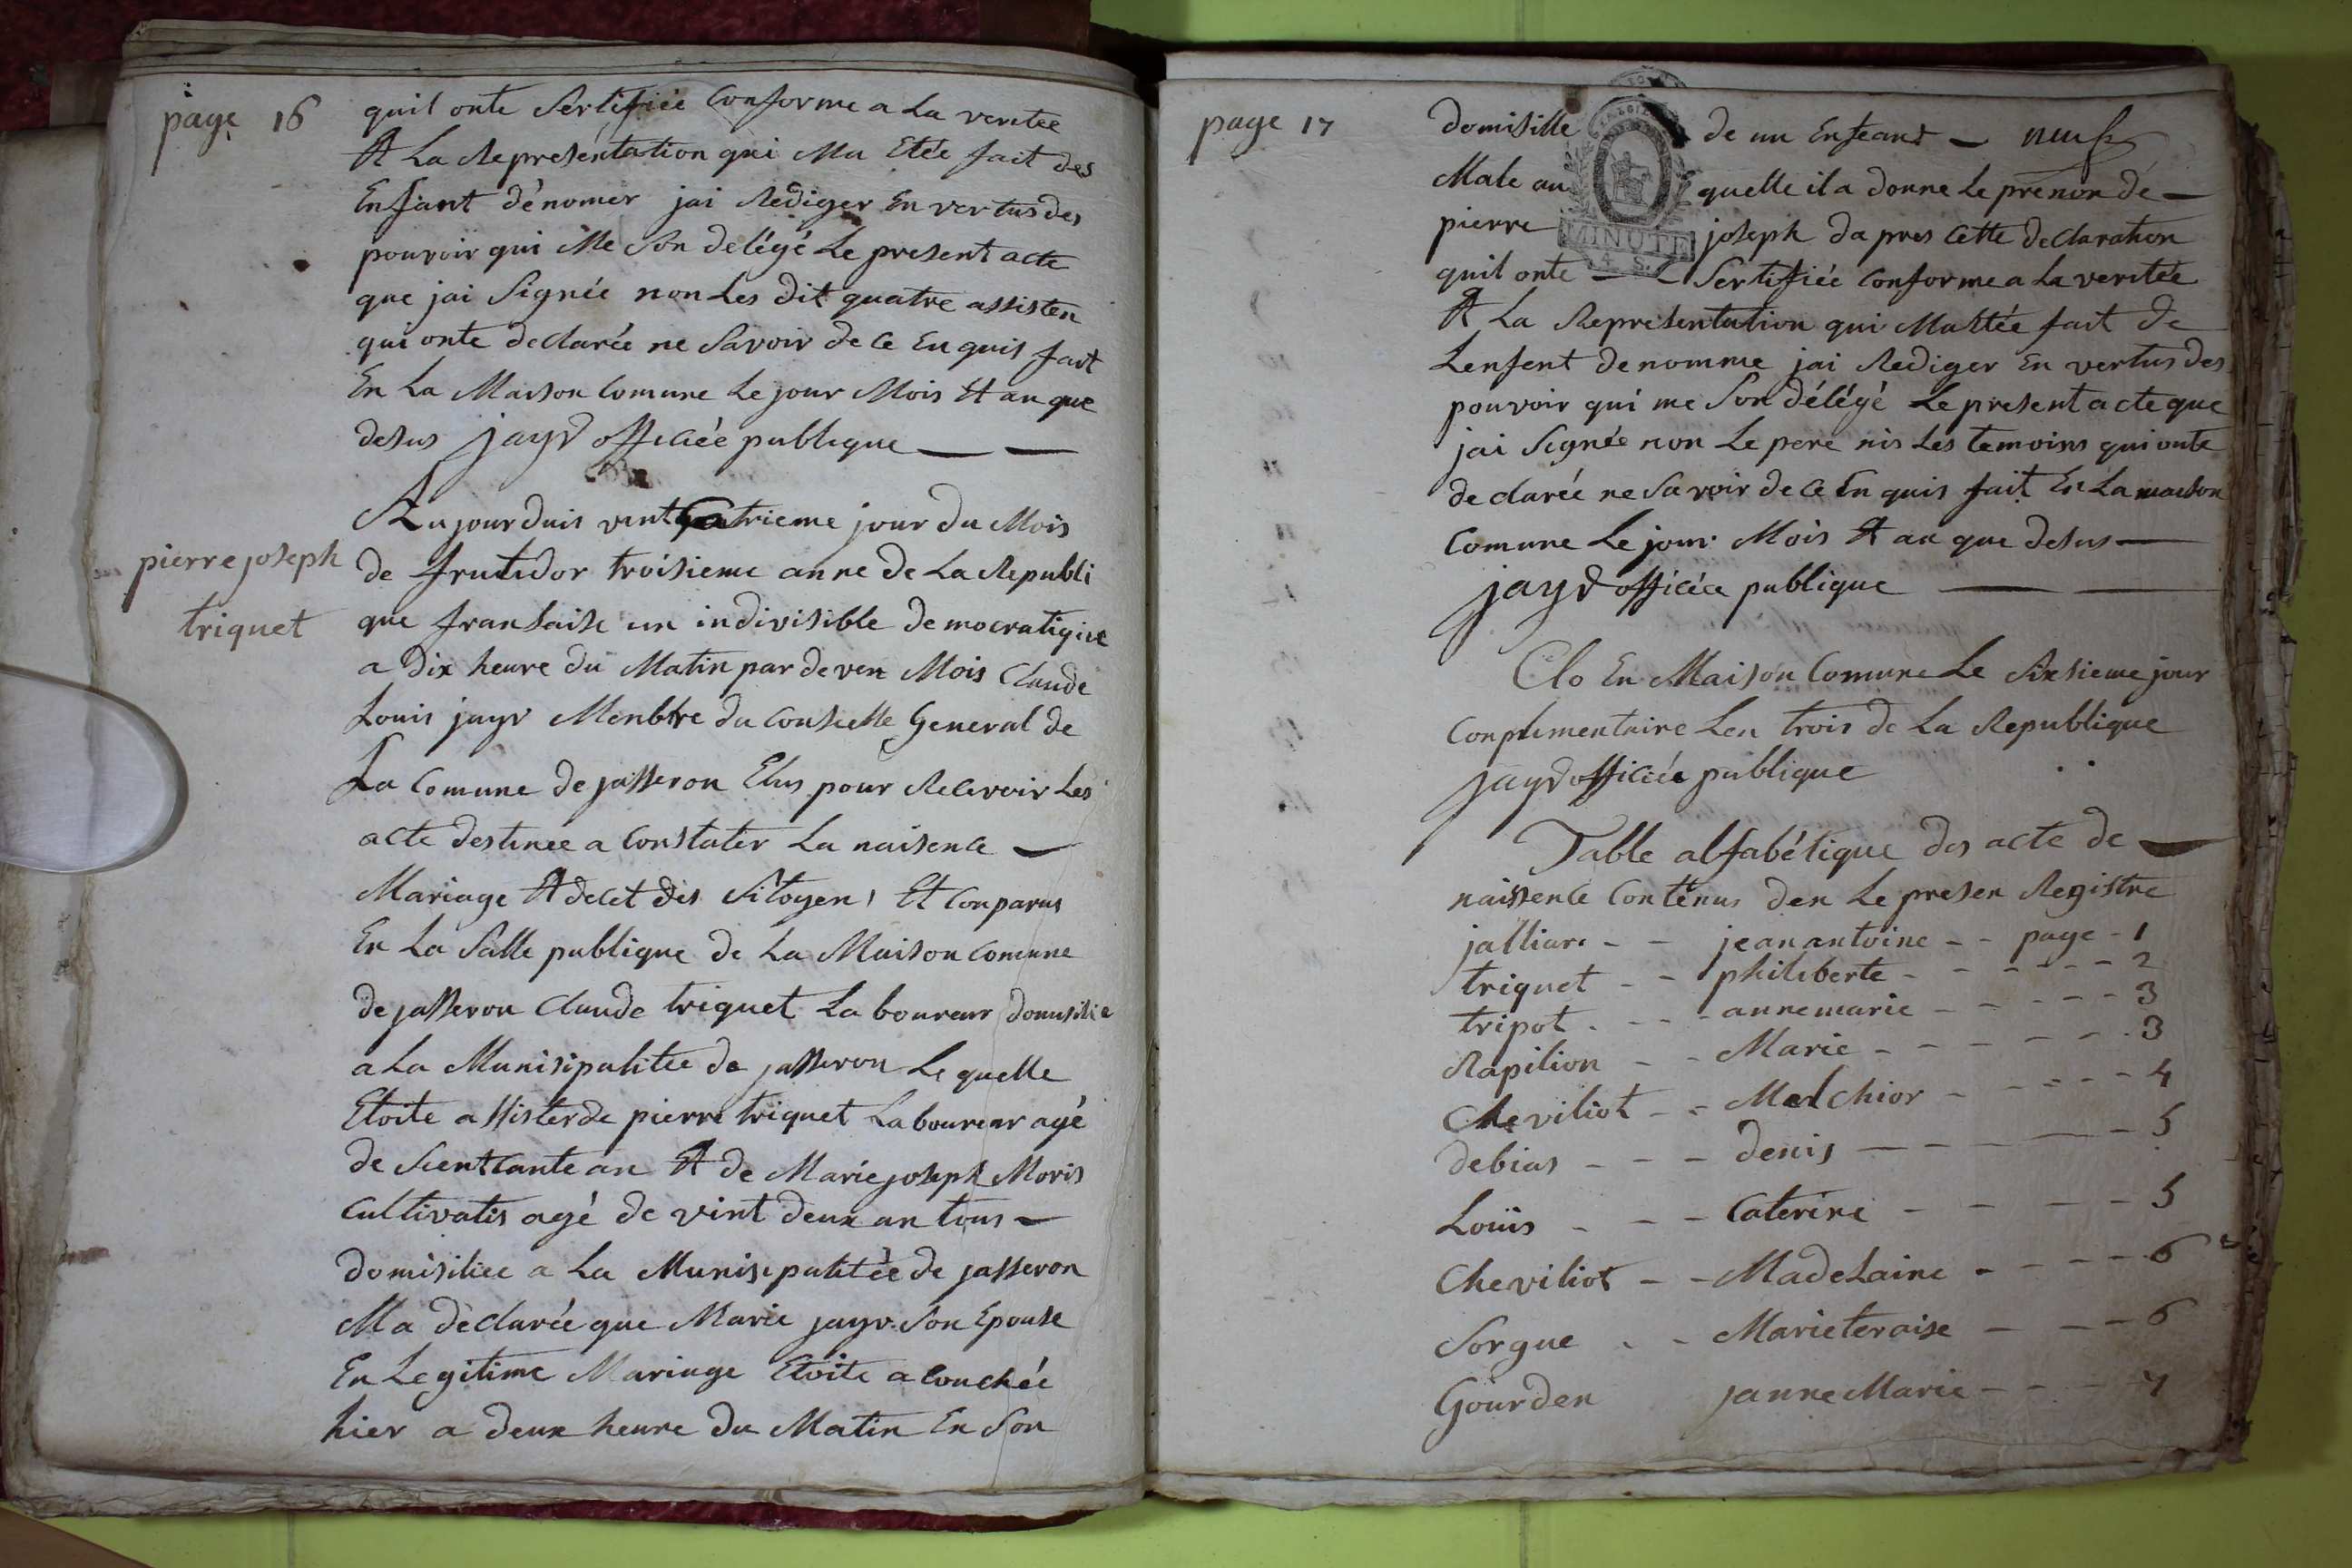 page 16
quil onte Sertifiée Conforme a La veritee
Et La Representation qui Ma Etée fait des
Enfant dénomer jai Rediger En vertus des
pouvoir qui Me Son delégé Le present acte
que jai Signée non Les dit quatre assisten
qui onte declarée ne Savoir de Ce En quis fait
En La Maison Comune Le jour Mois Et an que
desus jayr officiée publique
pierre joseph
triquet
Au jourduis vint quatrieme jour du Mois
de frutidor troisieme anne de La Republi
que fransaise un indivisible democratique
a Dix heure du Matin par deven Mois Claude
Louis jayr Menbtre du Conseelle General de
La Comune de jasseron Elus pour Recevoir Les
acte destinee a Constater La naisence
Mariage Et decet des Sitoyens Et Conparus
En La Salle publique de La Maison Comune
de jasseron Claude triquet La boureur domisilie
a La Munisipalitee de jasseron Le quelle
Etoite assister de pierre triquet La boureur agé
de Sentcante an Et de Marie joseph Moris
Cultivatis agé de vint deux an tous
domisiliee a La Munisipalitée de jasseron
Ma déclarée que Marie jayr Son Epouse
En Legitime Mariage Etoite a Couchée
hier a deux heure du Matin En Son
page 17
domisille de un Enfeant neuf
Male au quelle il a donne Le prenon de
pierre joseph da pres Cette declaration
quil onte Sertifiée Conforme a La veritée
Et La Representation qui Mastée fait de
Lenfent denomme jai Rediger En vertus des
pouvoir qui me Son délégé Le present acte que
jai Signée non Le pere nis Les temoins qui onte
declarée ne Savoir de Ce En quis fait En La maison
Comune Le jour Mois Et an que desus
jayr officiée publique
MINUTE
4 S.
Clo En Maison Comune Le Sixsieme jour
Conplimentaire Len trois de La Republique
jayr officiée publique
Table alfabétique des acte de
naissence Conténus den Le presen Registre
jalliar - - jean antoine - - page - 1
triquet - - philiberte - - - - - - 2
tripot - - - anne marie - - - - - 3
Rapilion - - Marie - - - - - - 3
Cheviliot - - Melchior - - - - - 4
debias - - - denis - - - - - 5
Louis - - - Caterine - - - - 5
Cheviliot - - Madelaine - - - - 6
Sorgue - - Marie teraise - - - 6
Gourden janne Marie - - - 7